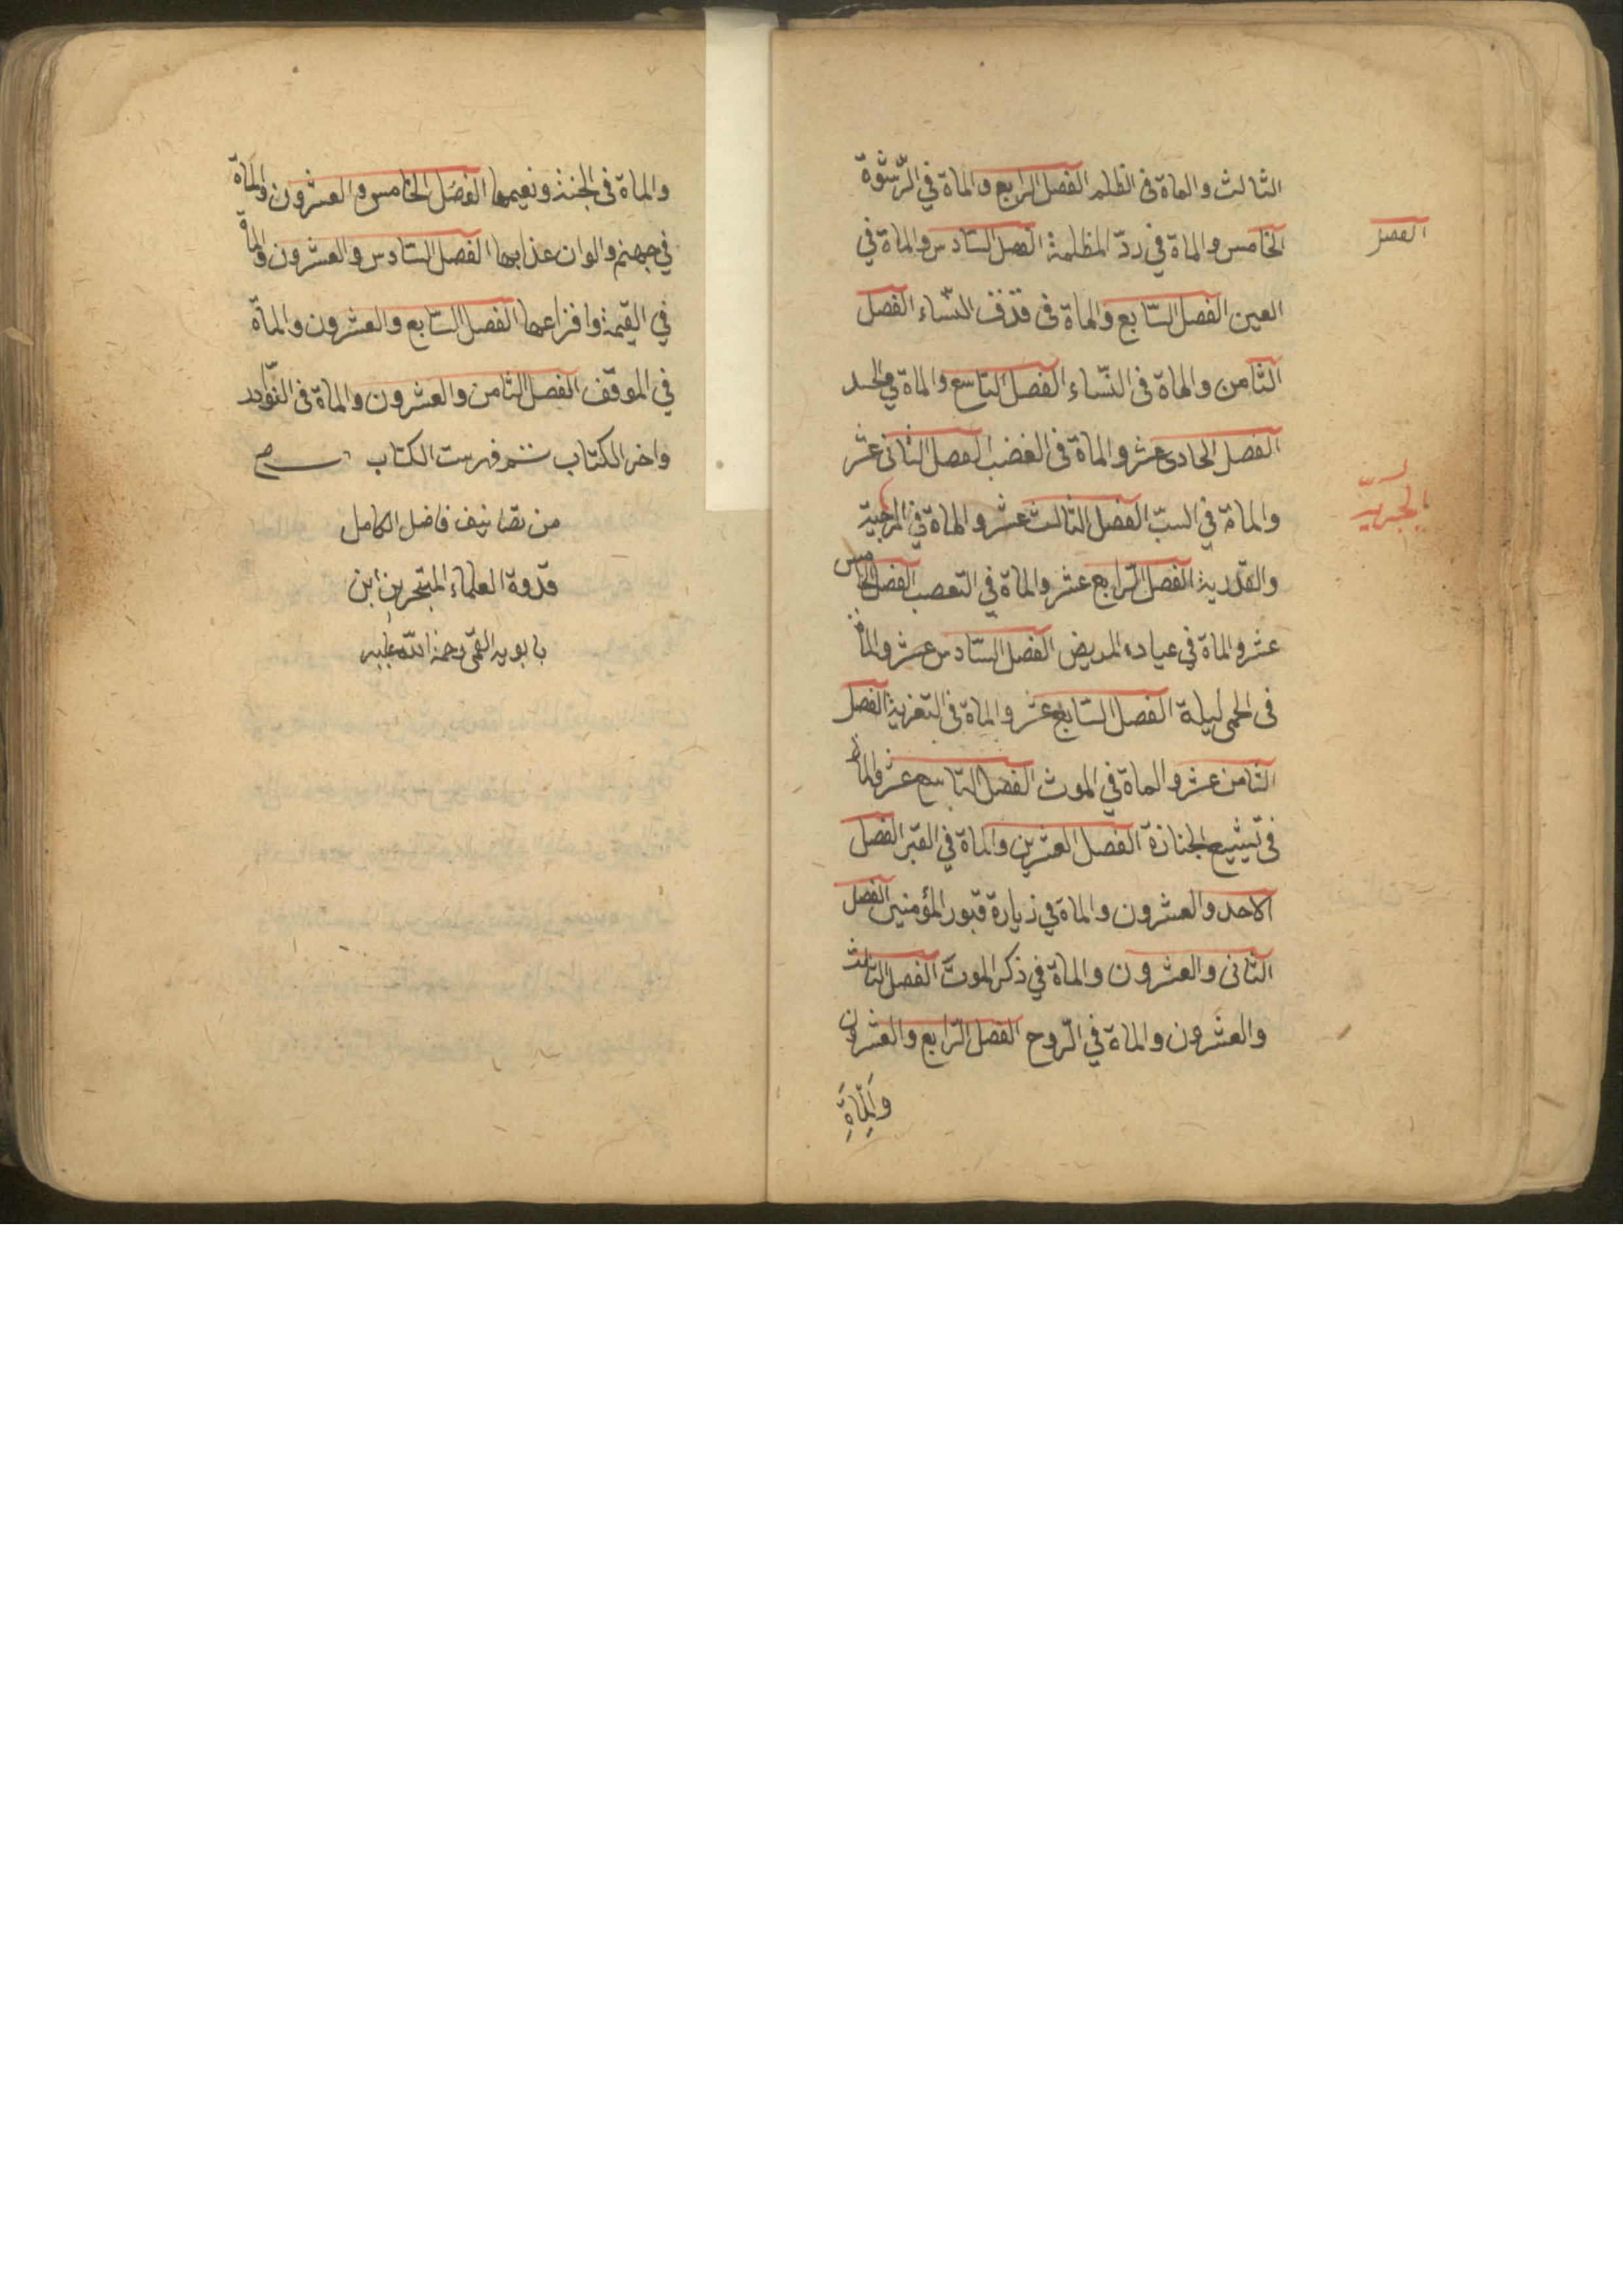 الثالث والماة فى الظلم الفصل الرابع والماة في الرّشوة
الفصل
الخامس والماة في ردّ المظلمة الفصل السّادس والماة في
العين الفصل السّابع والماة فى قذف النّساء الفصل
الثامن والماة فى النّساء الفصل التاسع والماة في الحسد
الفصل الحادى عشر والماة فى الغضب الفصل الثانى عشر
والماة في السبّ الفصل الثالث عشر والماة في المرجيّة
والقدرية الفصل الرّابع عشر والماة في التعصب الفصل الخامس
عشر والماة في عيادة المريض الفصل السّادس عشر والماة
فى الحمى ليلة الفصل السّابع عشر والماة فى التعزية الفصل
الثامن عشر والماة في الموت الفصل التاسع عشر والماة
فى تشييع الجنازة الفصل العشرين والماة في القبر الفصل
الاحد والعشرون والماة في زيارة قبور المؤمنين الفصل
الثانى والعشرون والماة في ذكر الموت الفصل الثالث
والعشرون والماة في الرّوح الفصل الرّابع والعشرون
والماة
والماة فى الجنة ونعيمها الفصل الخامس والعشرون والماة
في جهنم والوان عذابها الفصل السّادس والعشرون والماة
في القيمة وافزاعها الفصل السّابع والعشرون والماة
في الموقف الفصل الثامن والعشرون والماة فى النّوادر
واخر الكتاب تتم فهرست الكتاب
من تصانيف فاضل الكامل
قدوة العلماء المتبحرين ابن
بابويه القمى رحمة اللّه عليه